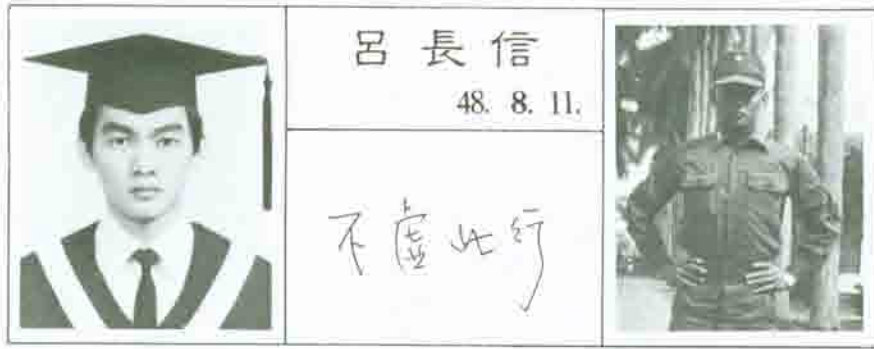 呂長信
48. 8. 11.
不虛此行